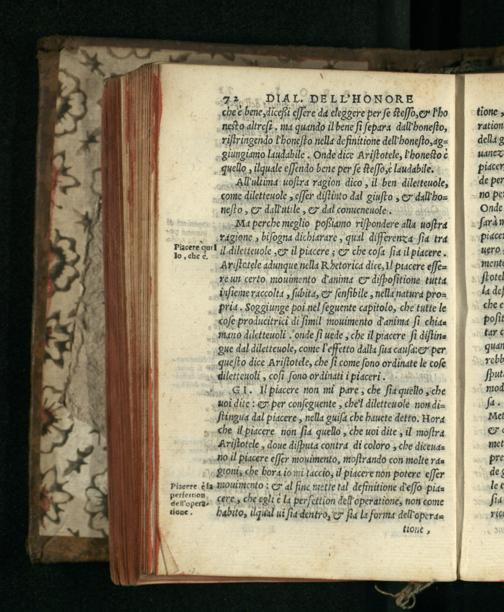 72 DIAL. DELL'HONORE
che è bene, dicesi essere da eleggere per se stesso, & l'ho
nesto altresi. ma quando il bene si separa dall'honesto,
ristringendo l'honesto nella definitione dell'honesto, ag-
giungiamo laudabile. Onde dice Aristotele, l'honesto è
quello, ilquale essendo bene per se stesso, è laudabile.
All'ultima uostra ragion dico, il ben diletteuole,
come diletteuole, esser distinto dal giusto, & dall'ho-
nesto, & dall'utile, & dal conueneuole.
Ma perche meglio possiamo rispondere alla uostra
ragione, bisogna dichiarare, qual differenza sia tra
il diletteuole, & il piacere; & che cosa sia il piacere.
Piacere quel
lo, che è.
Aristotele adunque nella Rhetorica dice, Il piacere esse-
re un certo mouimento d'anima & dispositione tutta
insieme raccolta, subita, & sensibile, nella natura pro-
pria. Soggiunge poi nel seguente capitolo, che tutte le
cose producitrici di simil mouimento d'anima si chia-
mano diletteuoli. onde si uede, che il piacere si distin-
gue dal diletteuole, come l'effetto dalla sua causa: & per
questo dice Aristotele, che si come sono ordinate le cose
diletteuoli, così sono ordinati i piaceri.
GI. Il piacere non mi pare, che sia quello, che
uoi dite: & per conseguente, che'l diletteuole non di-
stingua dal piacere, nella guisa che hauete detto. Hora
che il piacere non sia quello, che uoi dite, il mostra
Aristotele, doue disputa contra di coloro, che diceua-
no il piacere esser mouimento, mostrando con molte ra-
gioni, che hora io mi taccio, il piacere non potere esser
mouimento: & al fine mette tal definitione d'esso pia-
cere, che egli è la perfettion dell'operatione, non come
habito, ilqual ui sia dentro, & sia la forma dell'opera-
tione,
Piacere è la
perfettion
dell'opera-
tione.
tione,
ration
della g
uanez
piacer
de per
no per
Onde
sarà n
piacer
uero
mento
stotel
la def
che e
posit
tar c
quan
rebb
sput
mod
sa.
Me
& c
met
pre
de
le
sia